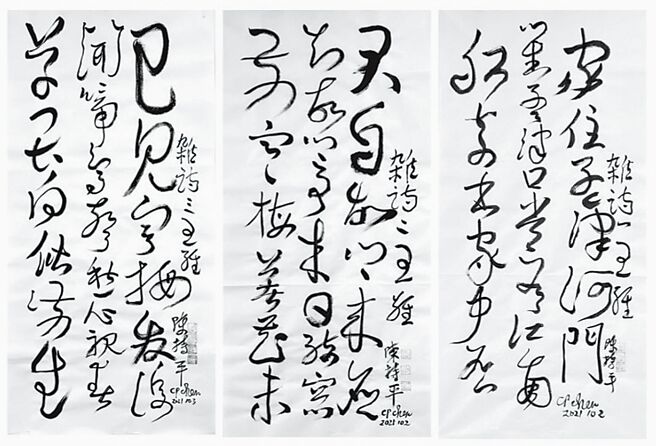 雜詩一王維
家住孟津河門
對孟津口常有江南
船寄書家中否
陳持平
CP chen
2021 10.2
雜詩二王維
君自故鄉來應
知故鄉事來日綺窗
前寒梅著花未
陳持平
CP chen
2021 10.2
雜詩三王維
已見寒梅發復
聞啼鳥聲愁心視春
草畏向階前生
陳持平
CP chen
2021 10.3